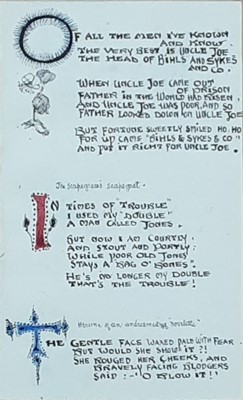 OF ALL THE MEN I'VE KNOWN
AND KNOW
THE VERY BEST IS UNCLE JOE
THE HEAD OF BIHLS AND SYKES
AND CO.
WHEN UNCLE JOE CAME OUT
OF PRISON
FATHER IN THE WORLD HAD RISEN
AND UNCLE JOE WAS POOR, AND SO
FATHER LOOKED DOWN ON UNCLE JOE
BUT FORTUNE SWEETLY SMILED HO. HO
FOR UP CAME "BIHLS & SYKES & CO"
AND PUT IT RIGHT FOR UNCLE JOE.
The Scapegrace's Scapegoat.
IN TIMES OF "TROUBLE"
I USED MY "DOUBLE"
A MAN CALLED JONES.
BUT NOW I AM COURTLY
AND STOUT AND PORTLY:
WHILE POOR OLD JONES
STAYS A "BAG O' BONES".
HE'S NO LONGER MY DOUBLE
THAT'S THE TROUBLE!
of an
THE GENTLE FACE WAXED PALE WITH FEAR
BUT WOULD SHE SHOW IT?!
SHE ROUGED HER CHEEKS, AND
BRAVELY FACING BLODGERS
SAID :- "O BLOW IT!"